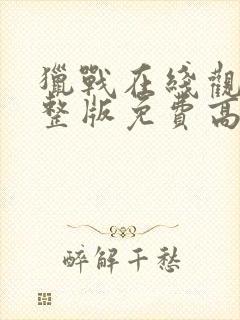 獵戰在綫觀
整版免費高
醉解千愁